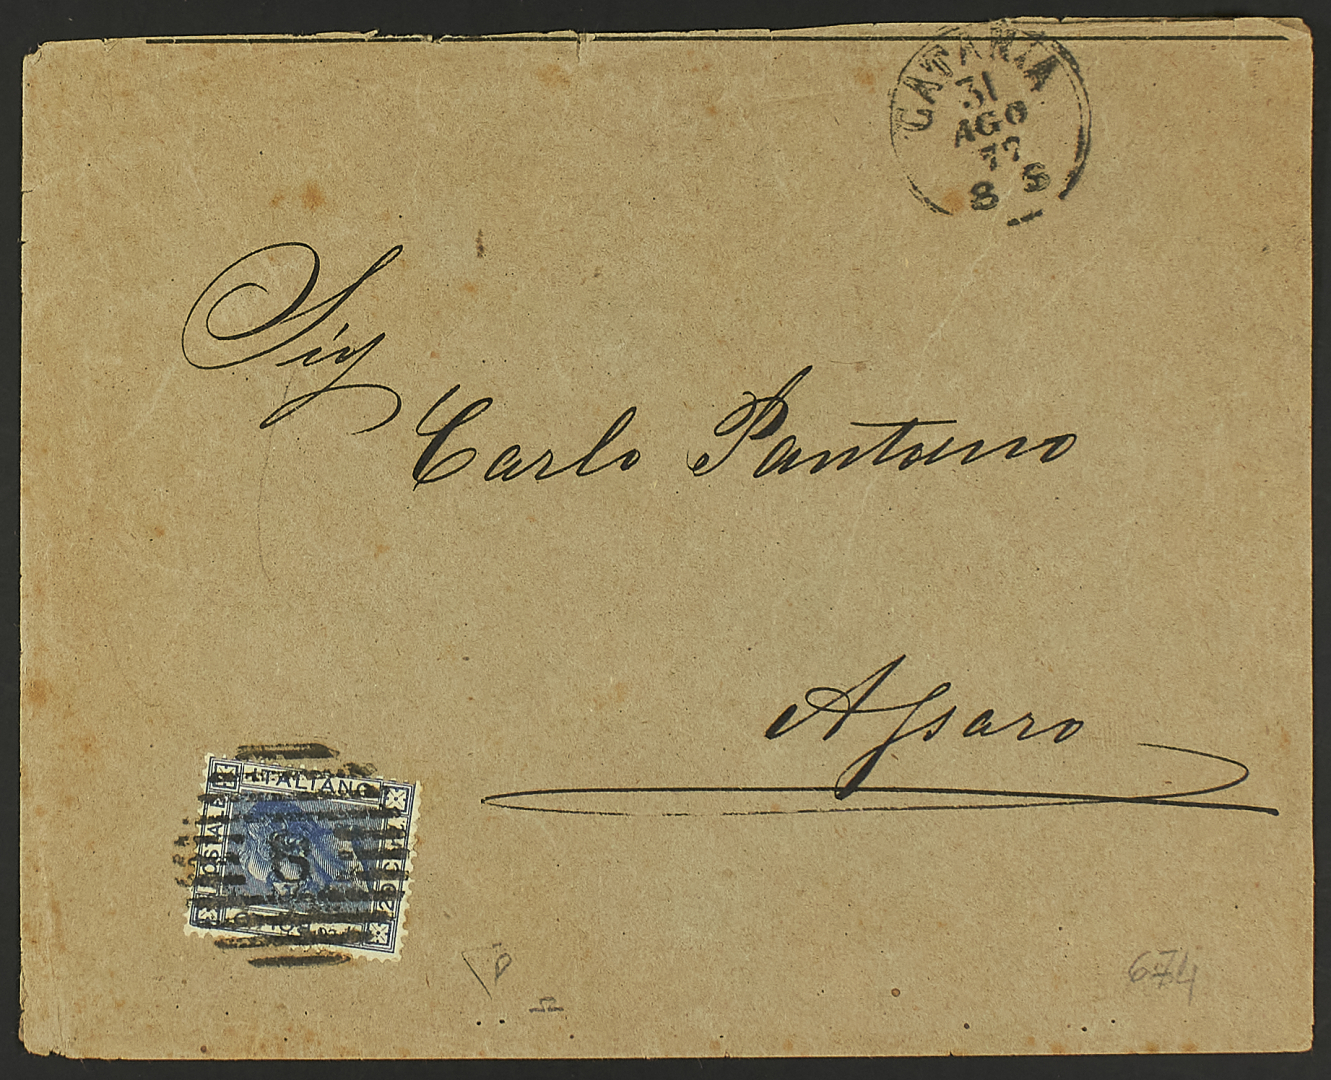 CATANIA
31
AGO
77
8 S
Sig
Carlo Pantano
Assaro
ITALIANO
POSTALE
20 C
8
674